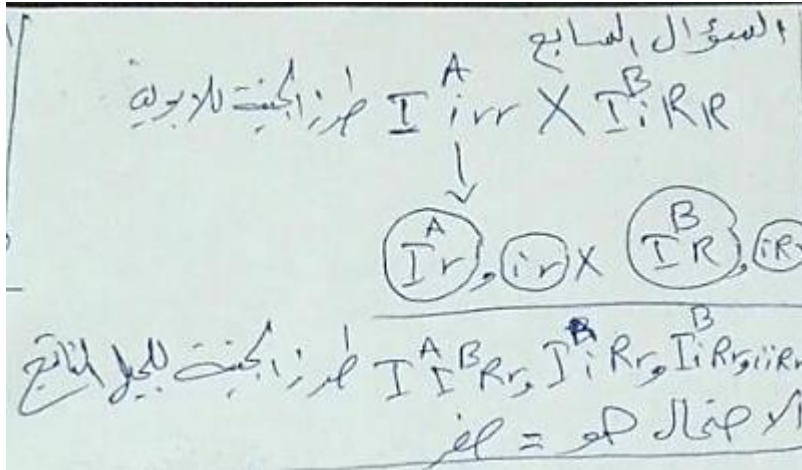 السؤال السابع
طرز الجينية للابوين I^A i r r X I^B i R R
I^A r , i r X I^B R , i R
طرز الجينية للجيل الناتج I^A I^B Rr , I^A i Rr , I^B i Rr , i i Rr
الاحتمال هو = صفر